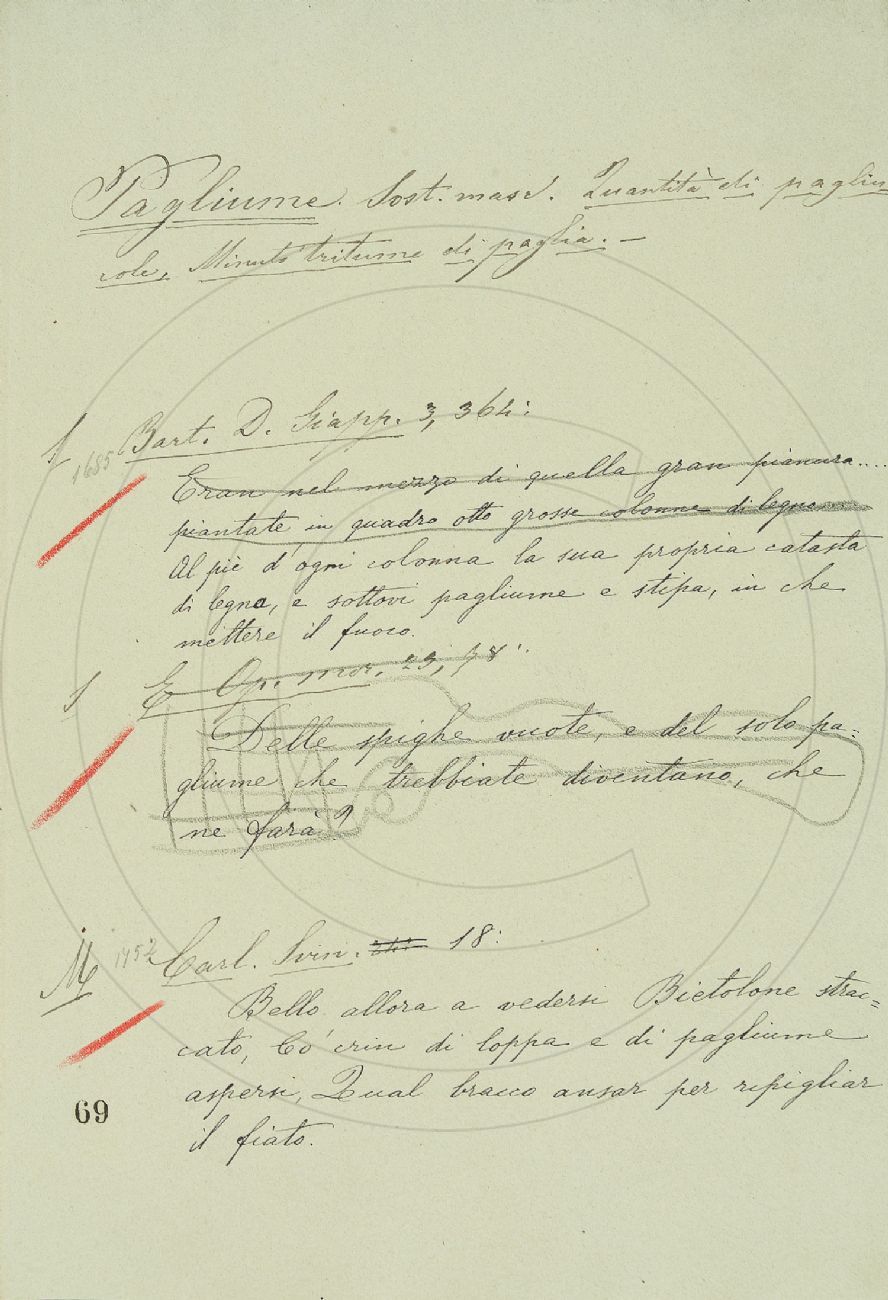 Pagliume. Sost. masc. Quantità di pagliu
cole, Minuto tritume di paglia. –
1685 Bart. D. Giapp. 3, 364:
Eran nel mezzo di quella gran pianura....
piantate in quadro otto grosse colonne di legno
Al piè d'ogni colonna la sua propria catasta
di legna, e sottovi pagliume e stipa, in che
mettere il fuoco.
E Op. mor. 29, 78:
Delle spighe vuote, e del solo pa=
gliume che trebbiate diventano, che
ne farà?
M 1752 Carl. Svin. 18:
Bello allora a vedersi Bietolone strac=
cato, Co' crin di loppa e di pagliume
aspersi, Qual bracco ansar per ripigliar
il fiato.
69